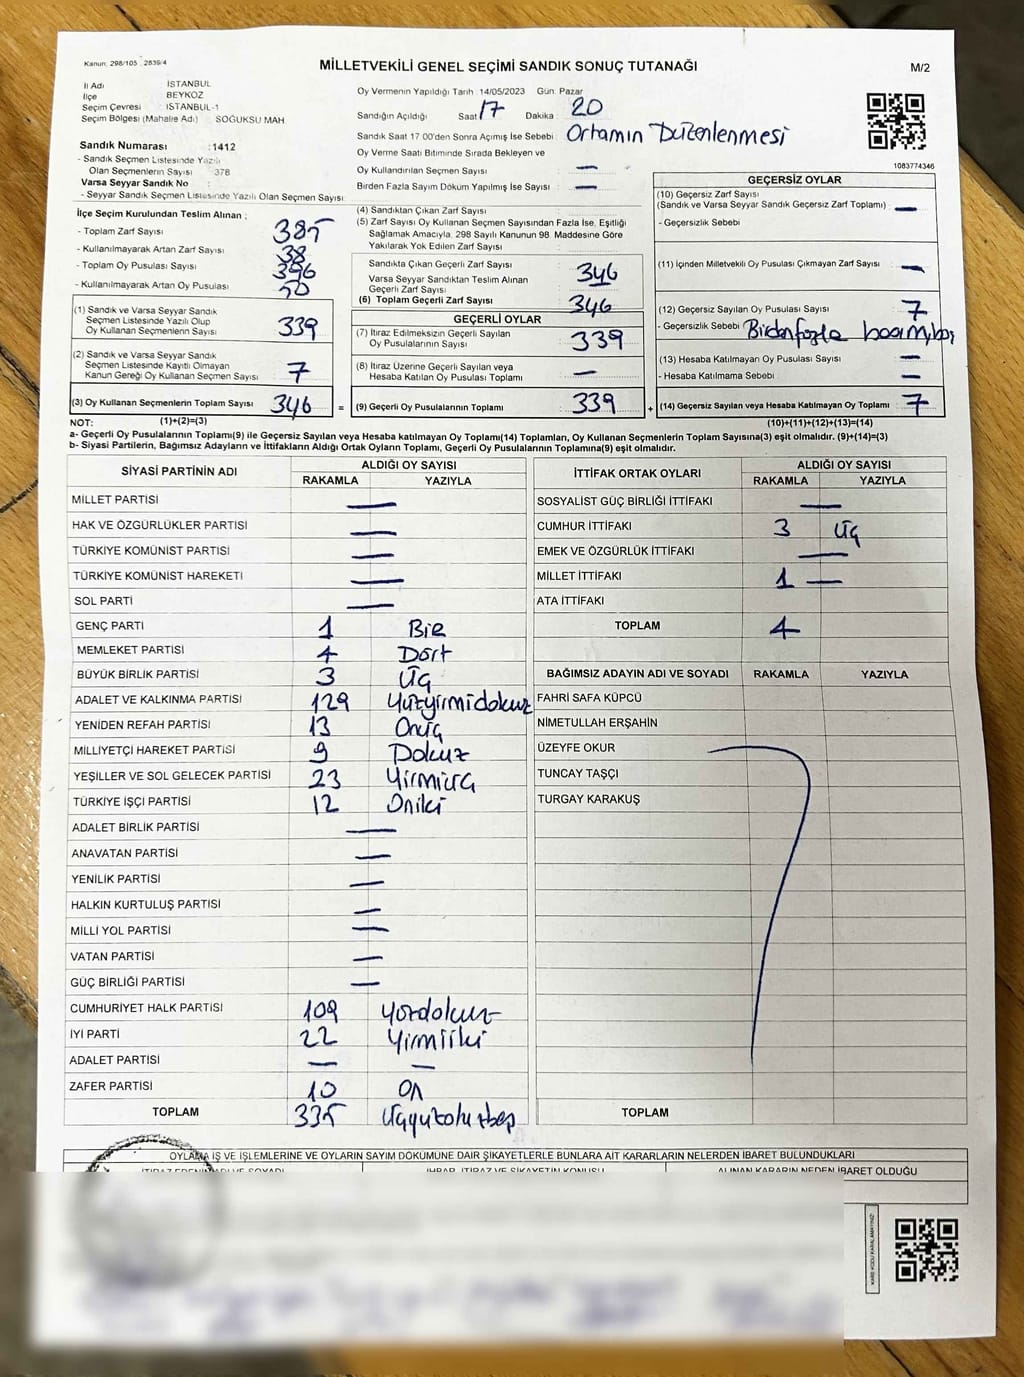 Kanun: 298/105 2839/4
MİLLETVEKİLİ GENEL SEÇİMİ SANDIK SONUÇ TUTANAĞI
M/2
İl Adı İSTANBUL
İlçe BEYKOZ
Seçim Çevresi İSTANBUL-1
Seçim Bölgesi (Mahalle Adı) SOĞUKSU MAH
Sandık Numarası :1412
- Sandık Seçmen Listesinde Yazılı
Olan Seçmenlerin Sayısı : 378
Varsa Seyyar Sandık No :
- Seyyar Sandık Seçmen Listesinde Yazılı Olan Seçmen Sayısı
Oy Vermenin Yapıldığı Tarih :14/05/2023 Gün: Pazar
Sandığın Açıldığı Saat 17 Dakika : 20
Sandık Saat 17.00'den Sonra Açımış İse Sebebi : Ortamın Düzenlenmesi
Oy Verme Saati Bitiminde Sırada Bekleyen ve
Oy Kullandırılan Seçmen Sayısı : —
Birden Fazla Sayım Döküm Yapılmış İse Sayısı : —
1083774346
İlçe Seçim Kurulundan Teslim Alınan ;
- Toplam Zarf Sayısı : 385
- Kullanılmayarak Artan Zarf Sayısı : 38
- Toplam Oy Pusulası Sayısı : 396
- Kullanılmayarak Artan Oy Pusulası : 50
(1) Sandık ve Varsa Seyyar Sandık
Seçmen Listesinde Yazılı Olup
Oy Kullanan Seçmenlerin Sayısı : 339
(2) Sandık ve Varsa Seyyar Sandık
Seçmen Listesinde Kayıtlı Olmayan
Kanun Gereği Oy Kullanan Seçmen Sayısı : 7
(3) Oy Kullanan Seçmenlerin Toplam Sayısı : 346
(1)+(2)=(3)
(4) Sandıktan Çıkan Zarf Sayısı :
(5) Zarf Sayısı Oy Kullanan Seçmen Sayısından Fazla İse, Eşitliği
Sağlamak Amacıyla, 298 Sayılı Kanunun 98. Maddesine Göre
Yakılarak Yok Edilen Zarf Sayısı :
Sandıkta Çıkan Geçerli Zarf Sayısı : 346
Varsa Seyyar Sandıktan Teslim Alınan
Geçerli Zarf Sayısı :
(6) Toplam Geçerli Zarf Sayısı : 346
GEÇERLİ OYLAR
(7) İtiraz Edilmeksizin Geçerli Sayılan
Oy Pusulalarının Sayısı : 339
(8) İtiraz Üzerine Geçerli Sayılan veya
Hesaba Katılan Oy Pusulası Toplamı : —
= (9) Geçerli Oy Pusulalarının Toplamı : 339
GEÇERSİZ OYLAR
(10) Geçersiz Zarf Sayısı
(Sandık ve Varsa Seyyar Sandık Geçersiz Zarf Toplamı) : —
- Geçersizlik Sebebi :
(11) İçinden Milletvekili Oy Pusulası Çıkmayan Zarf Sayısı : —
(12) Geçersiz Sayılan Oy Pusulası Sayısı : 7
- Geçersizlik Sebebi : Birden fazla
(13) Hesaba Katılmayan Oy Pusulası Sayısı : —
- Hesaba Katılmama Sebebi : —
+ (14) Geçersiz Sayılan veya Hesaba Katılmayan Oy Toplamı : 7
(10)+(11)+(12)+(13)=(14)
NOT:
a- Geçerli Oy Pusulalarının Toplamı(9) ile Geçersiz Sayılan veya Hesaba katılmayan Oy Toplamı(14) Toplamları, Oy Kullanan Seçmenlerin Toplam Sayısına(3) eşit olmalıdır. (9)+(14)=(3)
b- Siyasi Partilerin, Bağımsız Adayların ve İttifakların Aldığı Ortak Oyların Toplamı, Geçerli Oy Pusulalarının Toplamına(9) eşit olmalıdır.
SİYASİ PARTİNİN ADI ALDIĞI OY SAYISI
RAKAMLA YAZIYLA
MİLLET PARTİSİ —
HAK VE ÖZGÜRLÜKLER PARTİSİ —
TÜRKİYE KOMÜNİST PARTİSİ —
TÜRKİYE KOMÜNİST HAREKETİ —
SOL PARTİ —
GENÇ PARTİ 1 Bir
MEMLEKET PARTİSİ 4 Dört
BÜYÜK BİRLİK PARTİSİ 3 Üç
ADALET VE KALKINMA PARTİSİ 129 Yüzyirmidokuz
YENİDEN REFAH PARTİSİ 13 Onüç
MİLLİYETÇİ HAREKET PARTİSİ 9 Dokuz
YEŞİLLER VE SOL GELECEK PARTİSİ 23 Yirmiüç
TÜRKİYE İŞÇİ PARTİSİ 12 Oniki
ADALET BİRLİK PARTİSİ —
ANAVATAN PARTİSİ —
YENİLİK PARTİSİ —
HALKIN KURTULUŞ PARTİSİ —
MİLLİ YOL PARTİSİ —
VATAN PARTİSİ —
GÜÇ BİRLİĞİ PARTİSİ —
CUMHURİYET HALK PARTİSİ 109 Yüzdokuz
İYİ PARTİ 22 Yirmiiki
ADALET PARTİSİ — —
ZAFER PARTİSİ 10 On
TOPLAM 335 Üçyüzotuzbeş
İTTİFAK ORTAK OYLARI ALDIĞI OY SAYISI
RAKAMLA YAZIYLA
SOSYALİST GÜÇ BİRLİĞİ İTTİFAKI —
CUMHUR İTTİFAKI 3 Üç
EMEK VE ÖZGÜRLÜK İTTİFAKI —
MİLLET İTTİFAKI 1 —
ATA İTTİFAKI
TOPLAM 4
BAĞIMSIZ ADAYIN ADI VE SOYADI RAKAMLA YAZIYLA
FAHRİ SAFA KÜPCÜ
NİMETULLAH ERŞAHİN
ÜZEYFE OKUR
TUNCAY TAŞÇI
TURGAY KARAKUŞ
TOPLAM
OYLAMA İŞ VE İŞLEMLERİNE VE OYLARIN SAYIM DÖKÜMÜNE DAİR ŞİKAYETLERLE BUNLARA AİT KARARLARIN NELERDEN İBARET BULUNDUKLARI
İTİRAZ EDENİN ADI VE SOYADI İHBAR, İTİRAZ VE ŞİKAYETİN KONUSU ALINAN KARARIN NEDEN İBARET OLDUĞU
KARE KODU KARALAMAYINIZ!